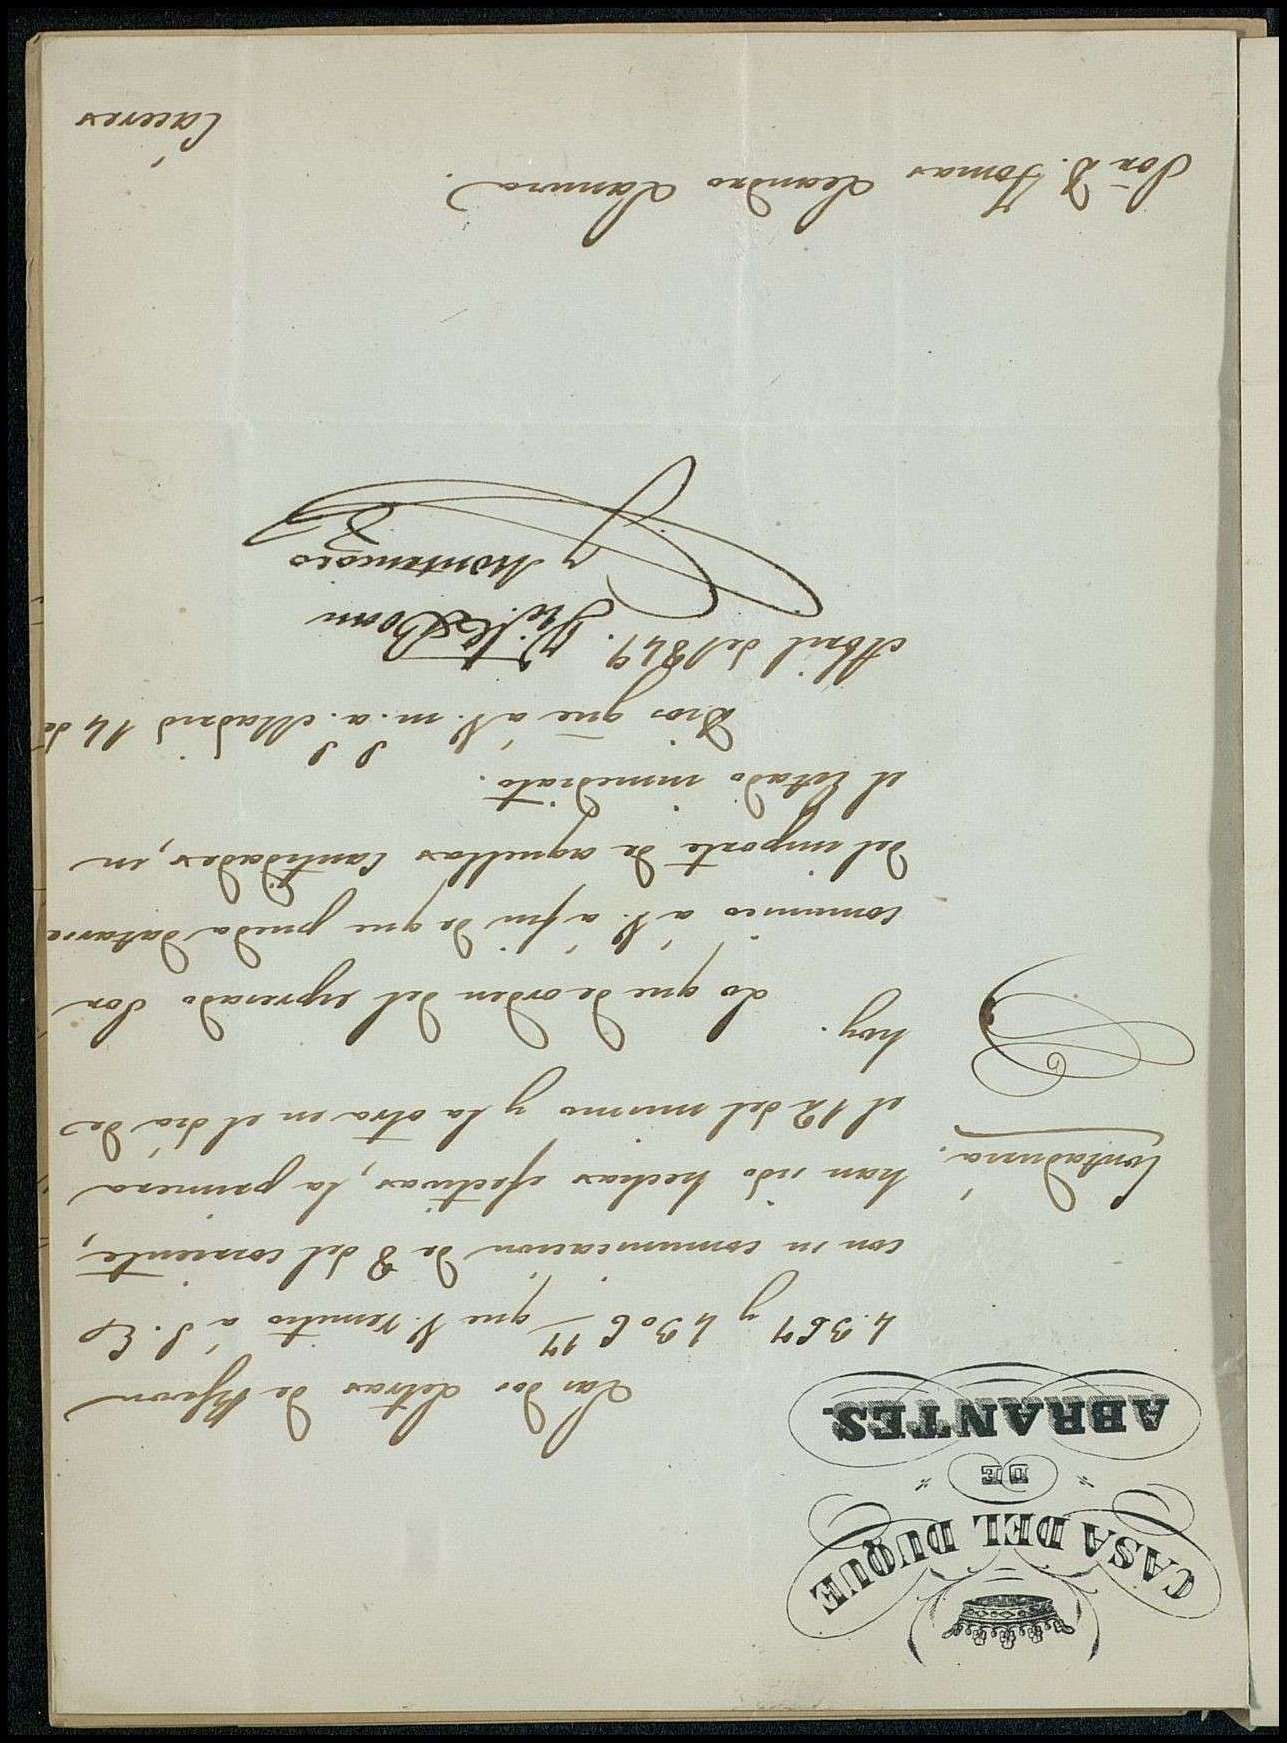 CASA DEL DUQUE
DE
ABRANTES.
Contaduria.
Las dos Letras de Rs. von
4.367 y 4306 17 que V. remitio á S. E.
con su comunicacion de 8 del corriente,
han sido hechas efectivas, la primera
el 12 del mismo y la otra en el dia de
hoy.
Lo que de orden del espresado Sor
comunico á V. á fin de que pueda datarse
del importe de aquellas Cantidades, en
el Estado inmediato.
Dios gue á V. m. a. Madrid 14 de
Abril de 1849.
Montemoro
Sor D. Tomas Leandro Lamora.
Cáceres